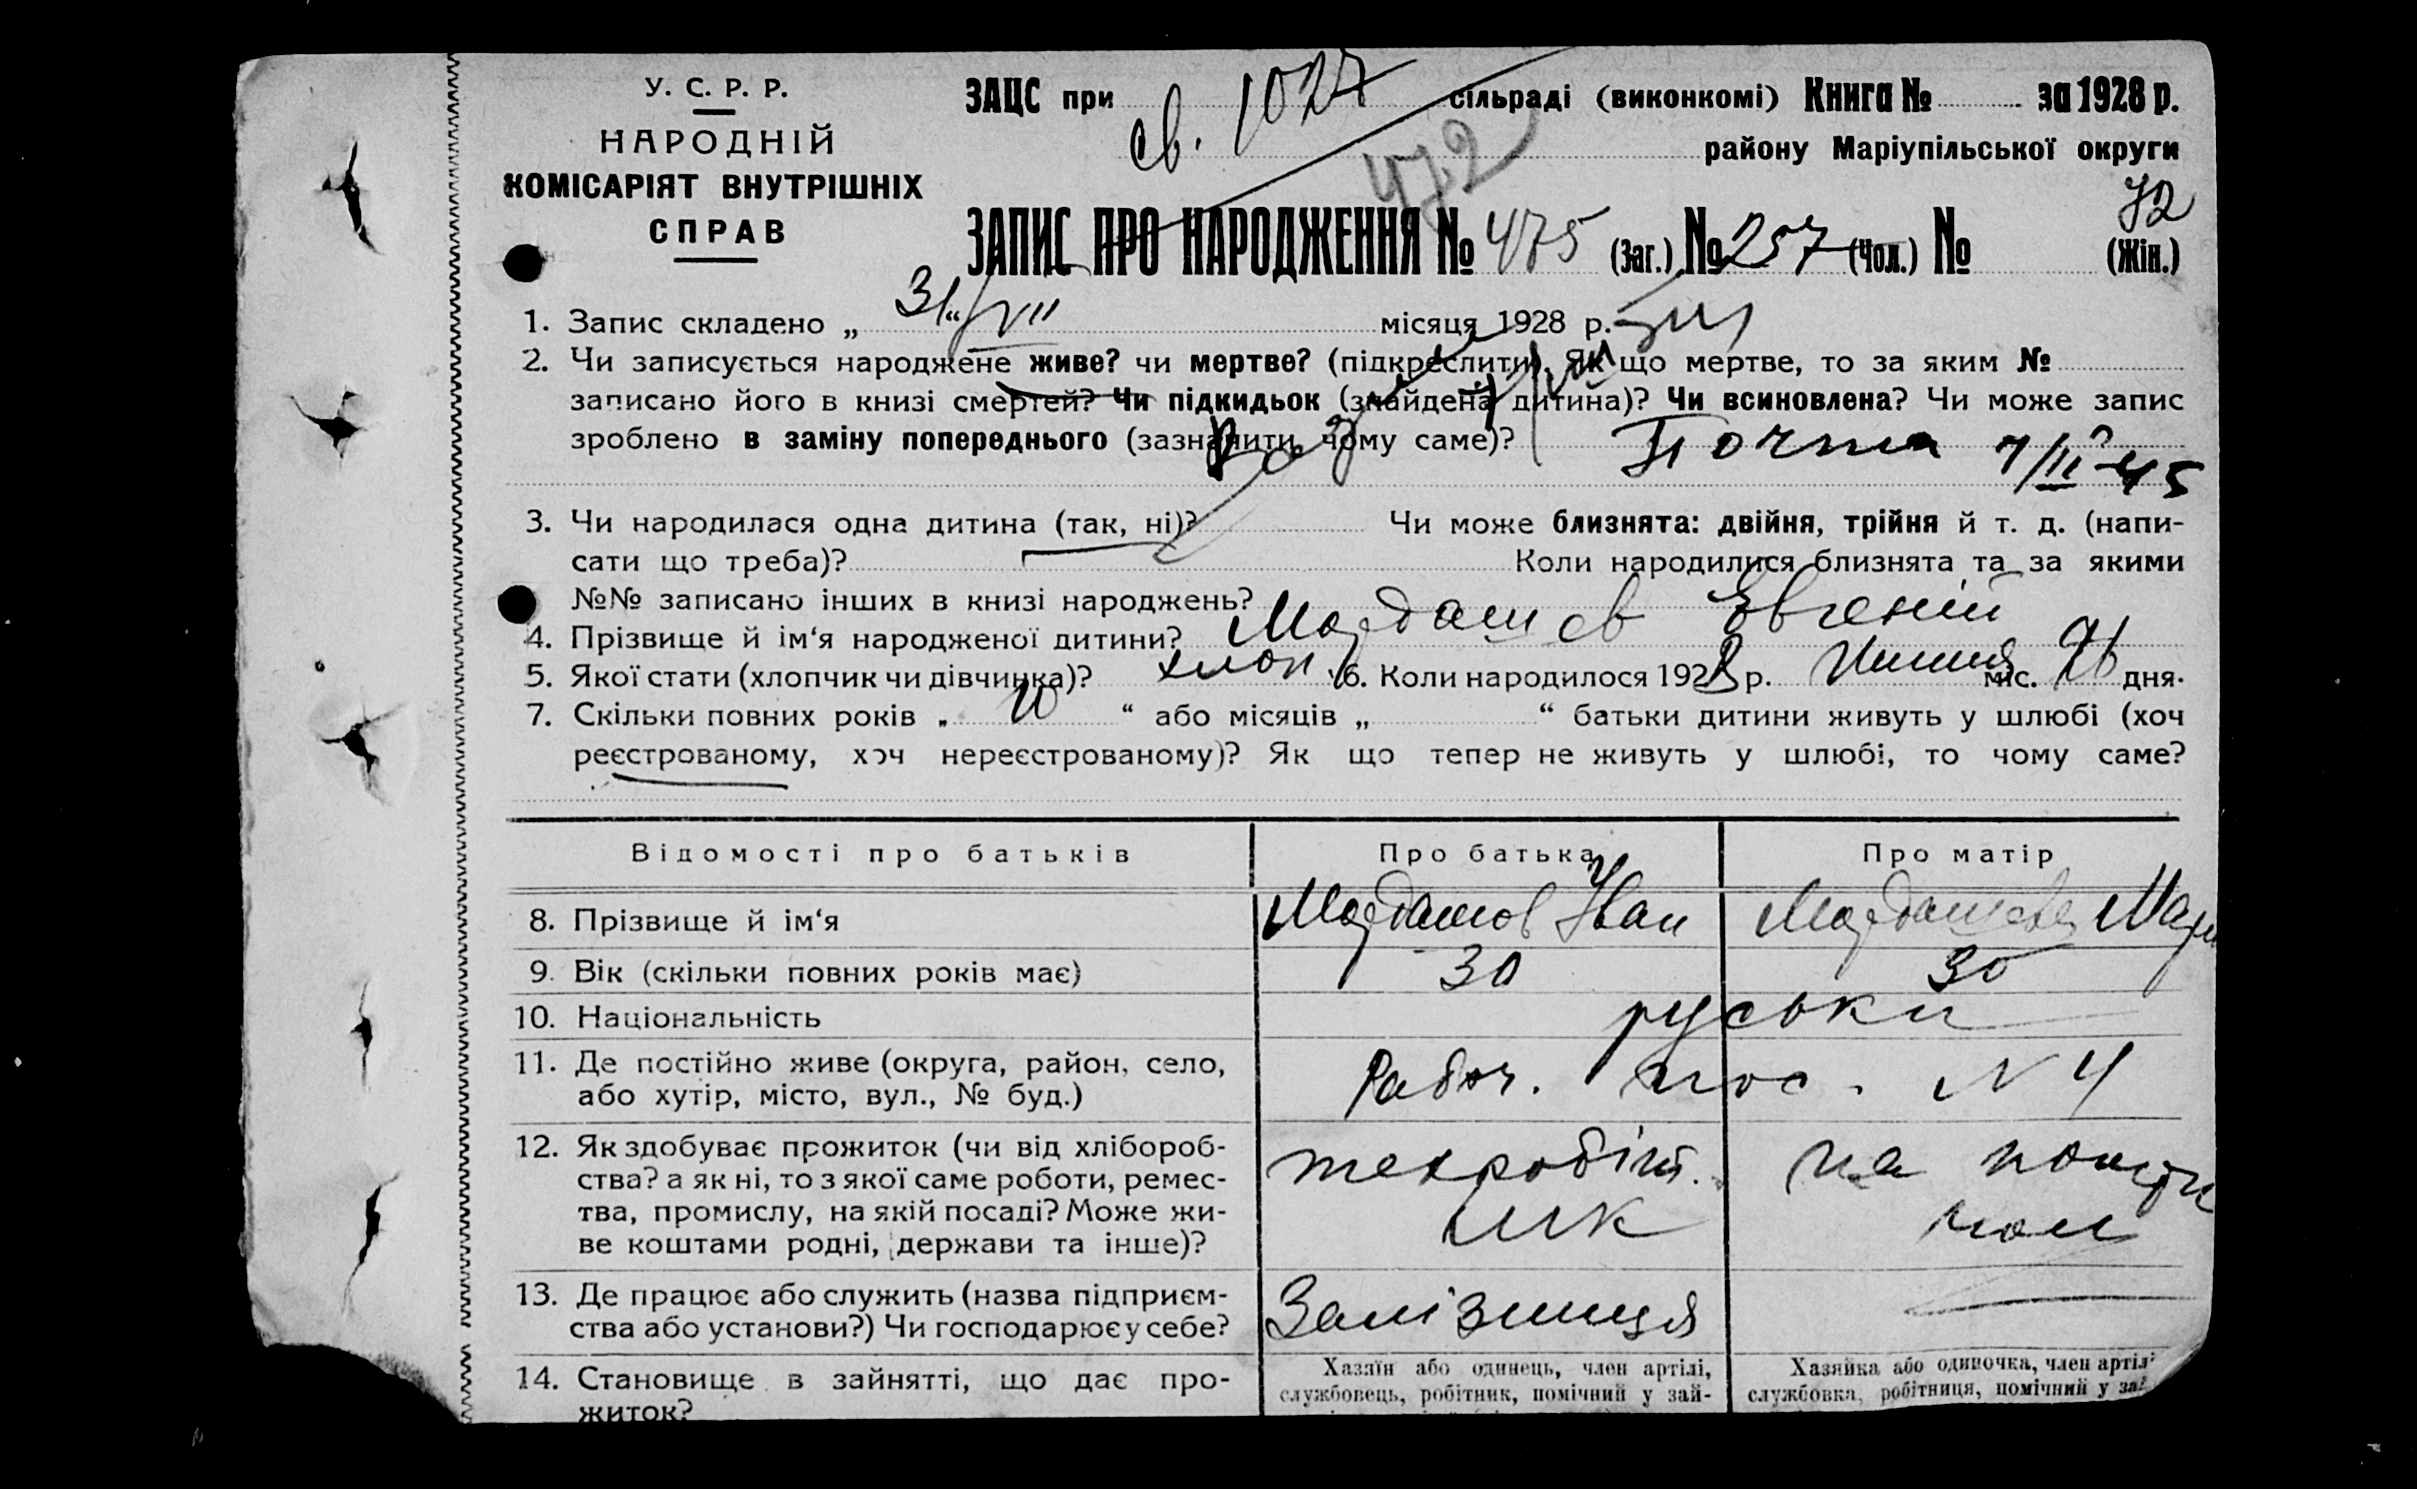 У. С. Р. Р.
НАРОДНІЙ
КОМІСАРІЯТ ВНУТРІШНІХ
СПРАВ
ЗАЦС при св. 1027 сільраді (виконкомі) Книга № за 1928 р.
472
району Маріупільської округи
72
ЗАПИС ПРО НАРОДЖЕННЯ № 475 (Заг.) № 257 (Чол.) № (Жін.)
1. Запис складено „ 31 “ VII місяця 1928 р.
2. Чи записується народжене живе? чи мертве? (підкреслити). Як що мертве, то за яким №
записано його в книзі смертей? Чи підкидьок (знайдена дитина)? Чи всиновлена? Чи може запис
зроблено в заміну попереднього (зазначити, чому саме)? Почта 7/II-45
3. Чи народилася одна дитина (так, ні)? Чи може близнята: двійня, трійня й т. д. (напи-
сати що треба)? Коли народилися близнята та за якими
№№ записано інших в книзі народжень?
4. Прізвище й ім‘я народженої дитини? Мардашов Євгеній
5. Якої стати (хлопчик чи дівчинка)? хлоп 6. Коли народилося 1928 р. Липня міс. 26 дня.
7. Скільки повних років „ 10 “ або місяців „ “ батьки дитини живуть у шлюбі (хоч
реєстрованому, хоч нереєстрованому)? Як що тепер не живуть у шлюбі, то чому саме?
Відомості про батьків Про батька Про матір
8. Прізвище й ім‘я Мардашов Иван Мардашова
9. Вік (скільки повних років має) 30 30
10. Національність руськи
11. Де постійно живе (округа, район, село,
або хутір, місто, вул., № буд.) Рабоч. пос. N 4
12. Як здобуває прожиток (чи від хлібороб-
ства? а як ні, то з якої саме роботи, ремес-
тва, промислу, на якій посаді? Може жи-
ве коштами родні, держави та інше)? техробіт. на
13. Де працює або служить (назва підприєм-
ства або установи?) Чи господарює у себе? Залізниця
14. Становище в зайнятті, що дає про-
житок?
Хазяїн або одинець, член артілі,
службовець, робітник, помічний у зай-
Хазяйка або одиночка, член артіл
службовка, робітниця, помічний у за